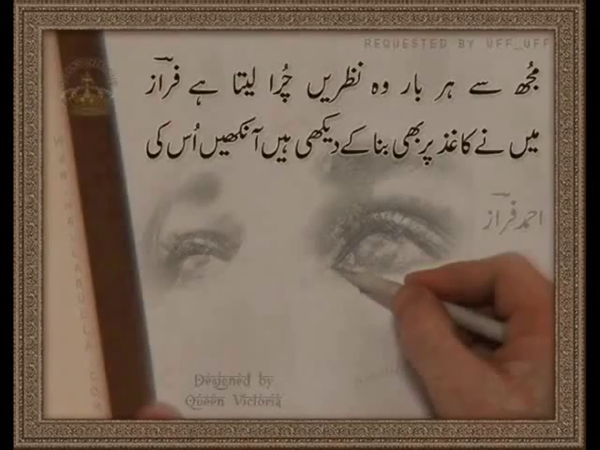 REQUESTED BY UFF_UFF
مجُھ سے ہر بار وہ نظریں چُرا لیتا ہے فراز
میں نے کاغذ پر بھی بنا کے دیکھی ہیں آنکھیں اُس کی
احمد فراز
Designed by
Queen Victoria